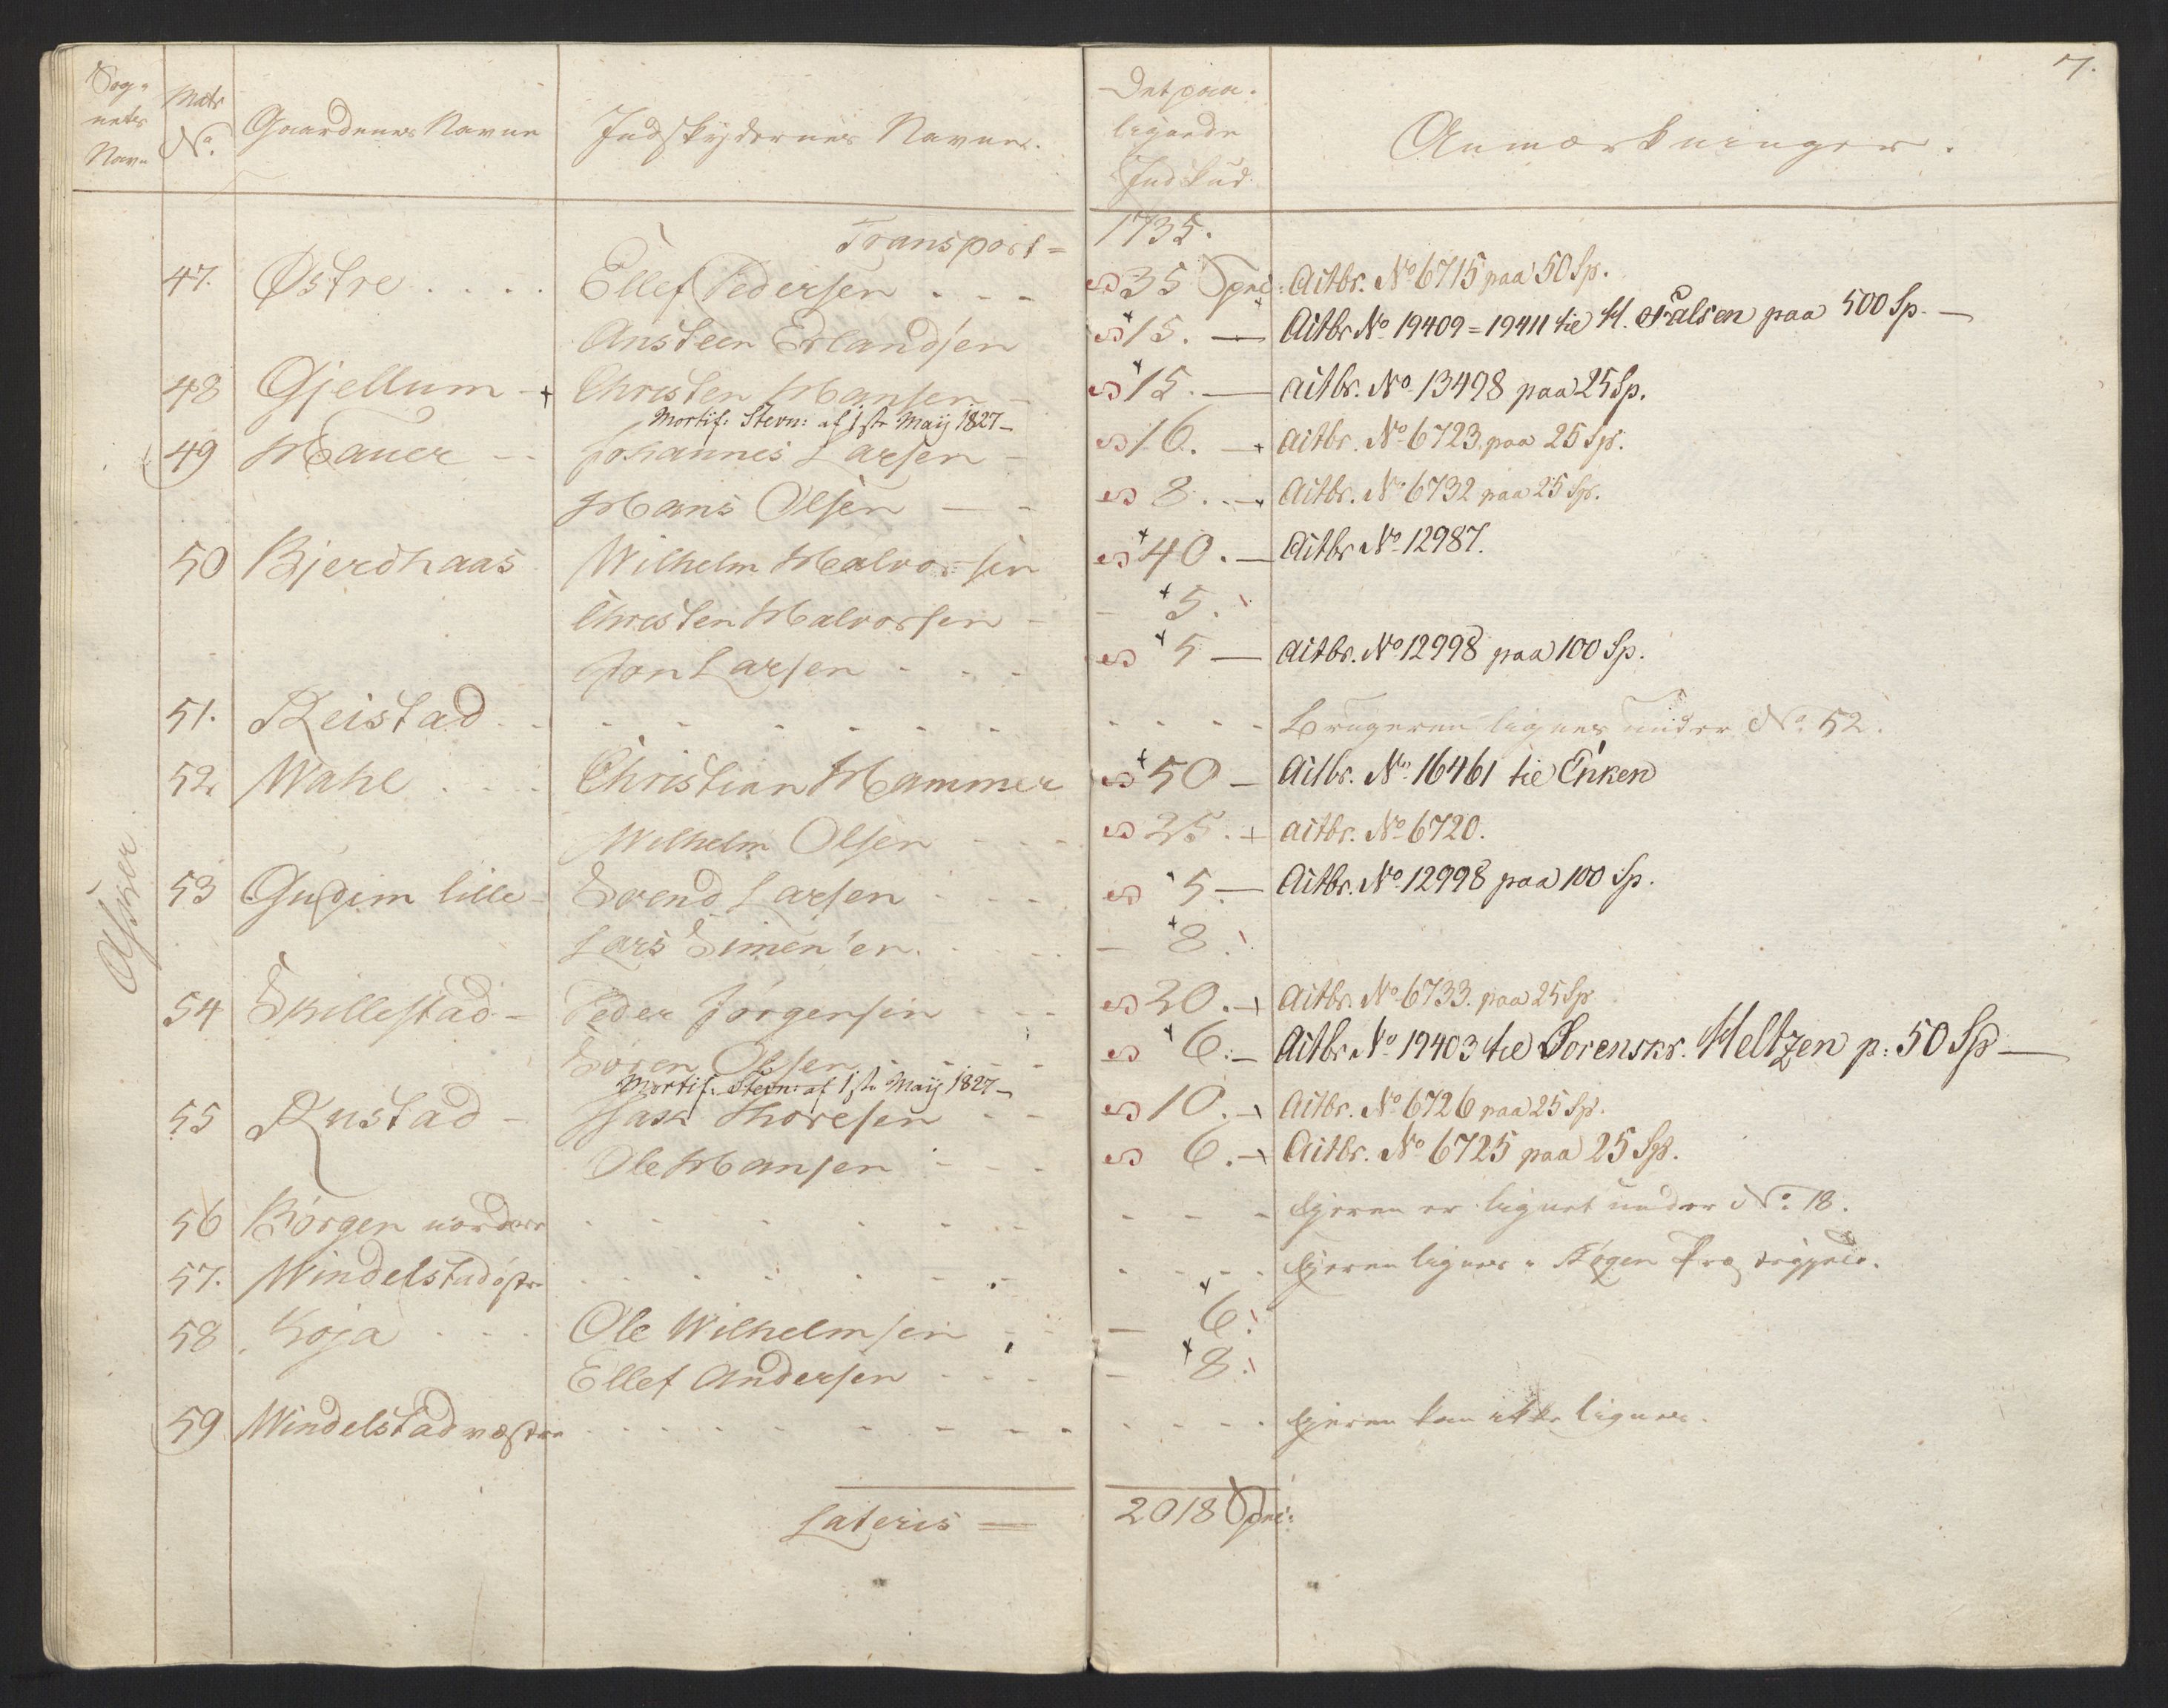 7.
Sog- Matr Gaardenes Navne Indskydernes Navne. Det paa- Anmærkninger.
netes No. lignede
Navn Indskud
Transport = 1735.
Asker
47. Østre Ellef Pedersen 35 Spec: Actbr. No 6715 paa 50 Sp.
Ansteen Erlandsen 15. Actbr No 19409 = 19411 til H. Falsen paa 500 Sp.
48 Gjellum Christen Hansen 15. Actbr. No 13498 paa 25 Sp.
Mortif: Stevn: af 1ste Maij 1827
49 Hauer Johannes Larsen 16. Actbr. No 6723 paa 25 Sp.
Hans Olsen 8. Actbr. No 6732 paa 25 Sp.
50 Bjerdhaas Wilhelm Halvorsen 40. Actbr No 12987.
Christen Halvorsen 5.
Jon Larsen 5 Actbr. No 12998 paa 100 Sp.
51. Reistad Brugeren lignes under No. 52.
52 Wahl Christian Hammer 50 Actbr. No 16461 til Enken
Wilhelm Olsen 25. Actbr. No 6720.
53 Gudim lille Svend Larsen 5. Actbr. No 12998 paa 100 Sp.
Lars Simensen 8.
54 Skillestad Peder Jørgensen 20. Actbr. No 6733. paa 25 Sp
Søren Olsen 6. Actbr No 19403 til Sorenskr. Heltzen p: 50 Sp
Mortif. Stevn: af 1ste Maij 1827
55 Rustad Isak Thoresen 10. Actbr. No 6726 paa 25 Sp.
Ole Hansen 6. Actbr. No 6725 paa 25 Sp.
56 Børgen nordere Ejeren er lignet under No. 18.
57. Windelstad østre Ejeren lignes i
58 Koja Ole Wilhelmsen 6.
Ellef Andersen 8.
59 Windelstad vestre Ejeren kan ikke lignes.
Lateris = 2018 Spec: